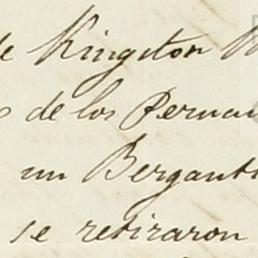 de Kingston
de los Peruan
un Bergant
se retiraron